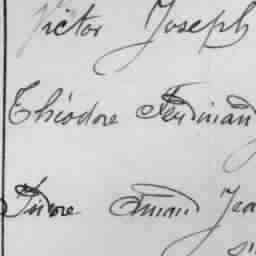 Victor Joseph
Théodore Ferdinand
Isidore Amand Jea